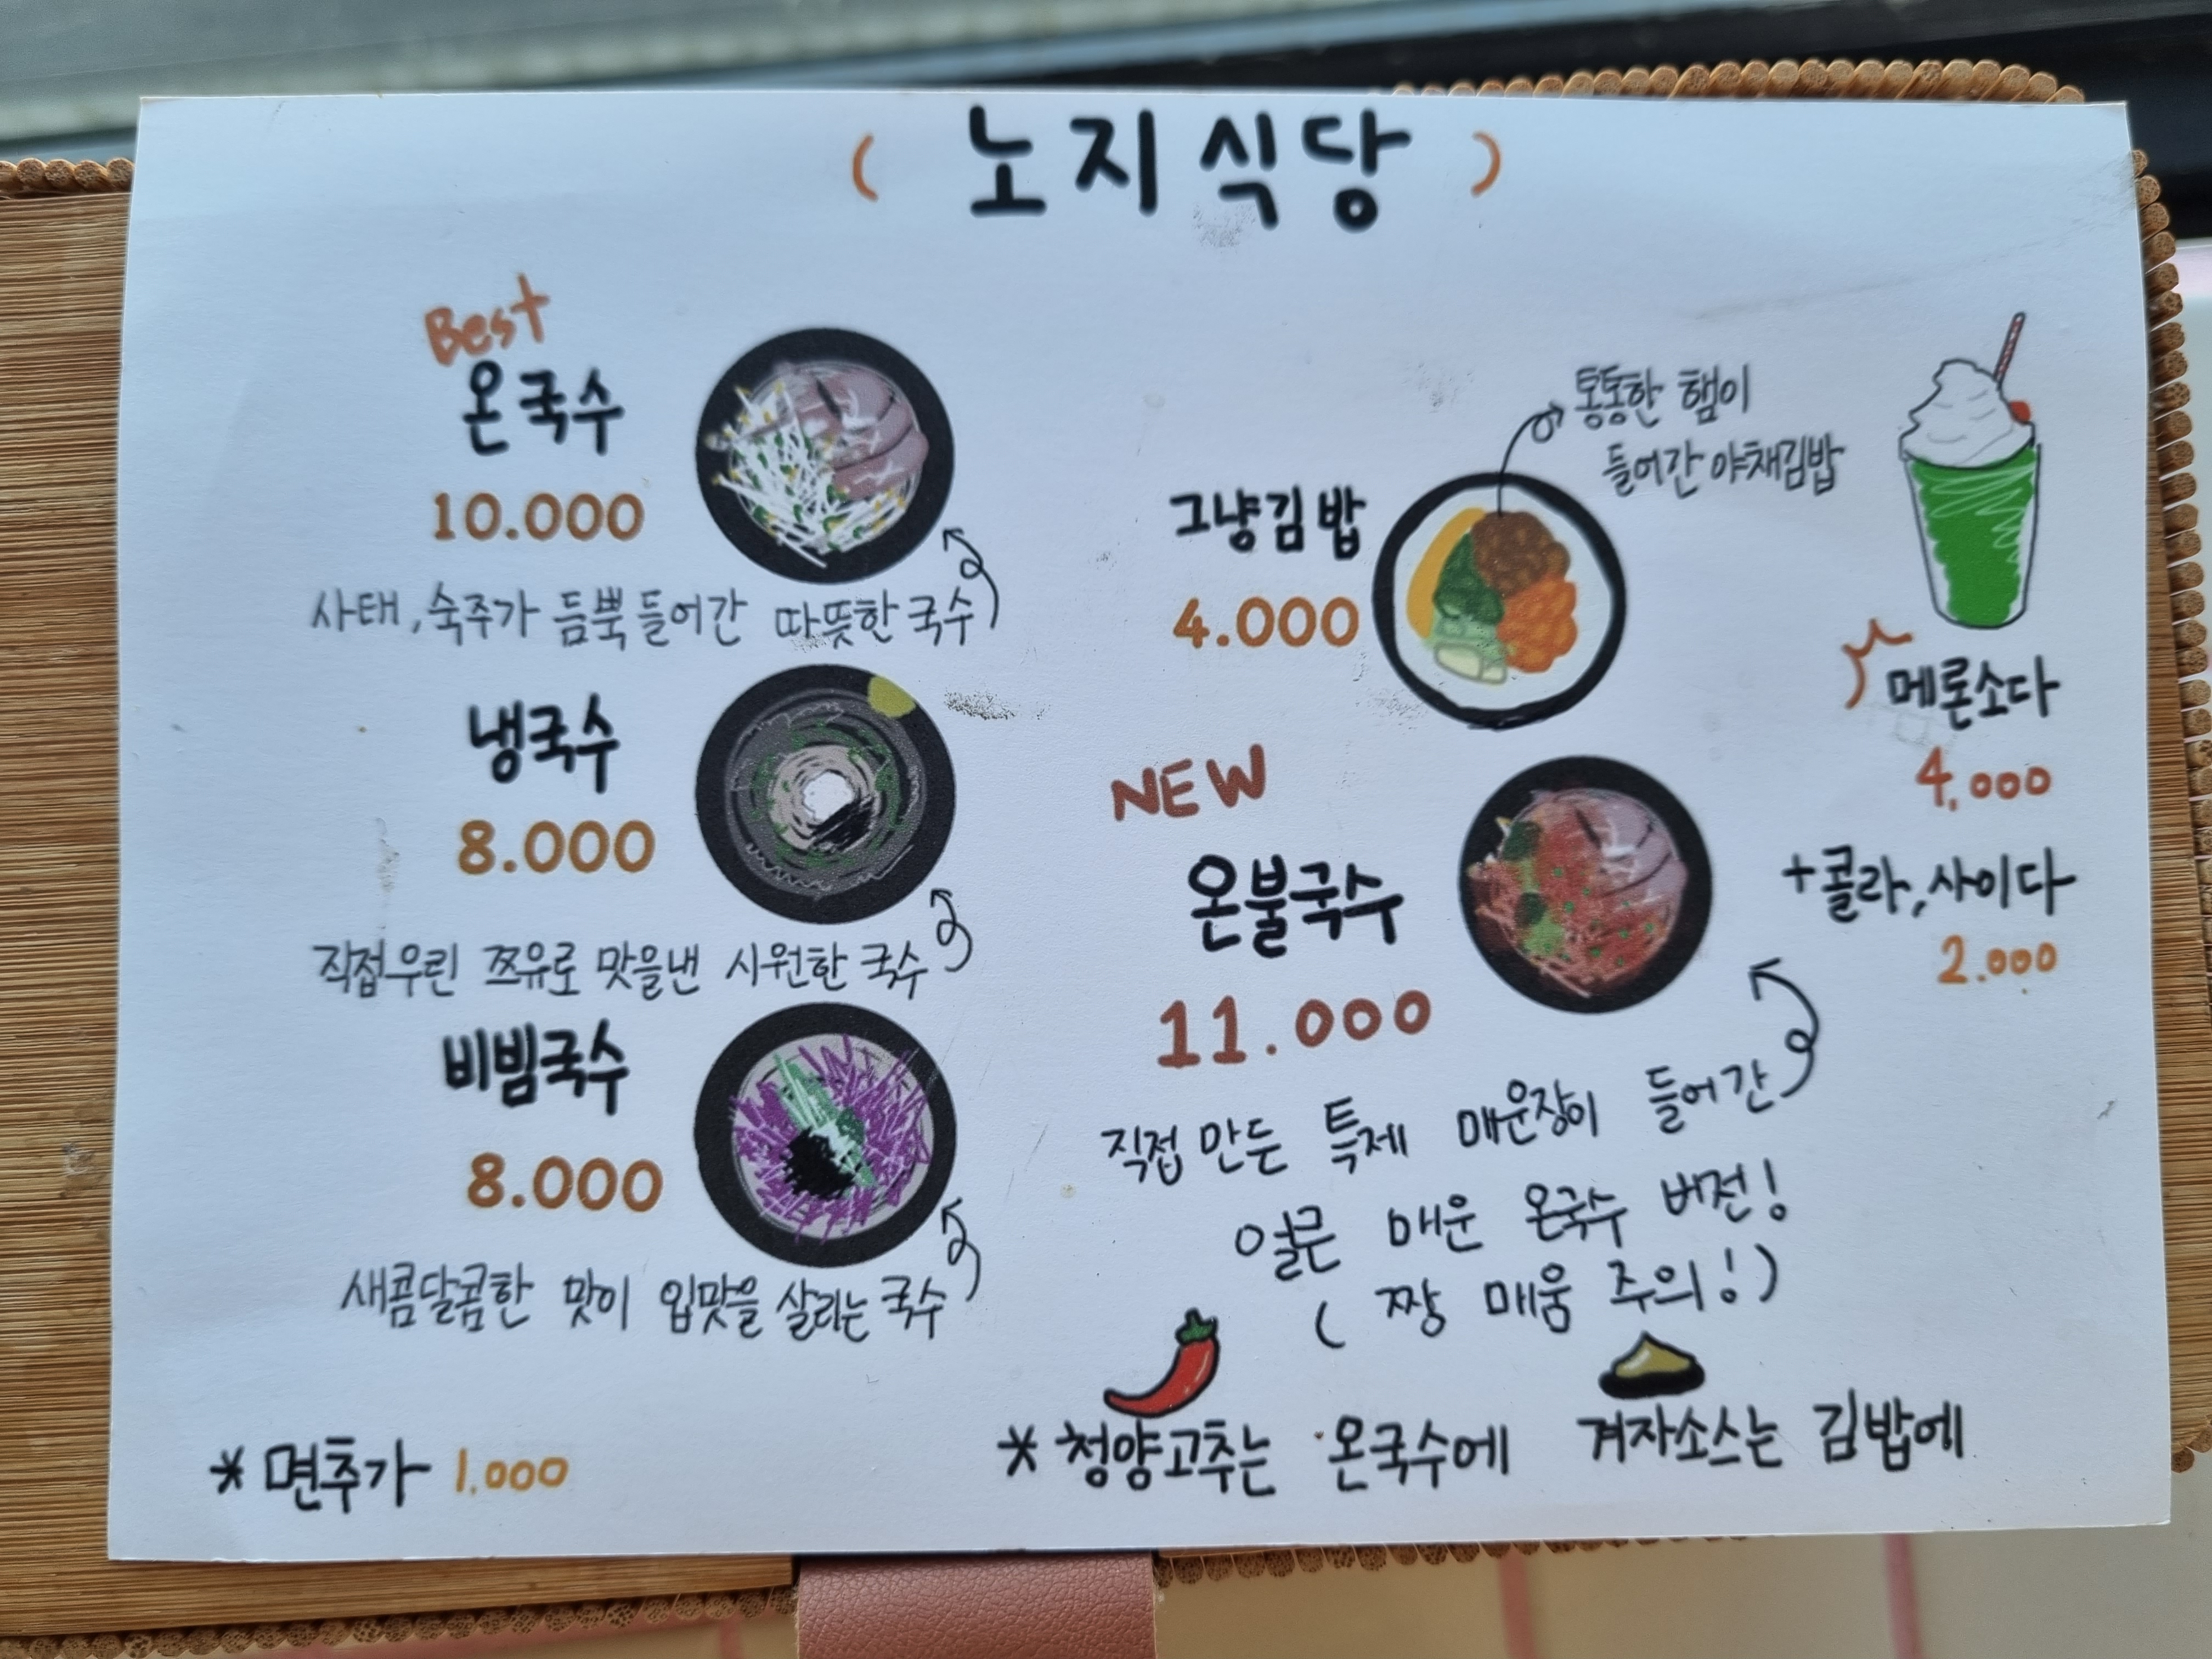 ( 노지식당 )
Best
온국수
10.000
사태, 숙주가 듬뿍 들어간 따뜻한 국수
냉국수
8.000
직접우린 쯔유로 맛을낸 시원한 국수
비빔국수
8.000
새콤달콤한 맛이 입맛을 살리는 국수
* 면추가 1.000
통통한 햄이
들어간 야채김밥
그냥김밥
4.000
NEW
온불국수
11.000
직접 만든 특제 매운장이 들어간
얼큰 매운 온국수 버전!
( 짱 매움 주의! )
메론소다
4,000
+콜라, 사이다
2.000
* 청양고추는 온국수에 겨자소스는 김밥에